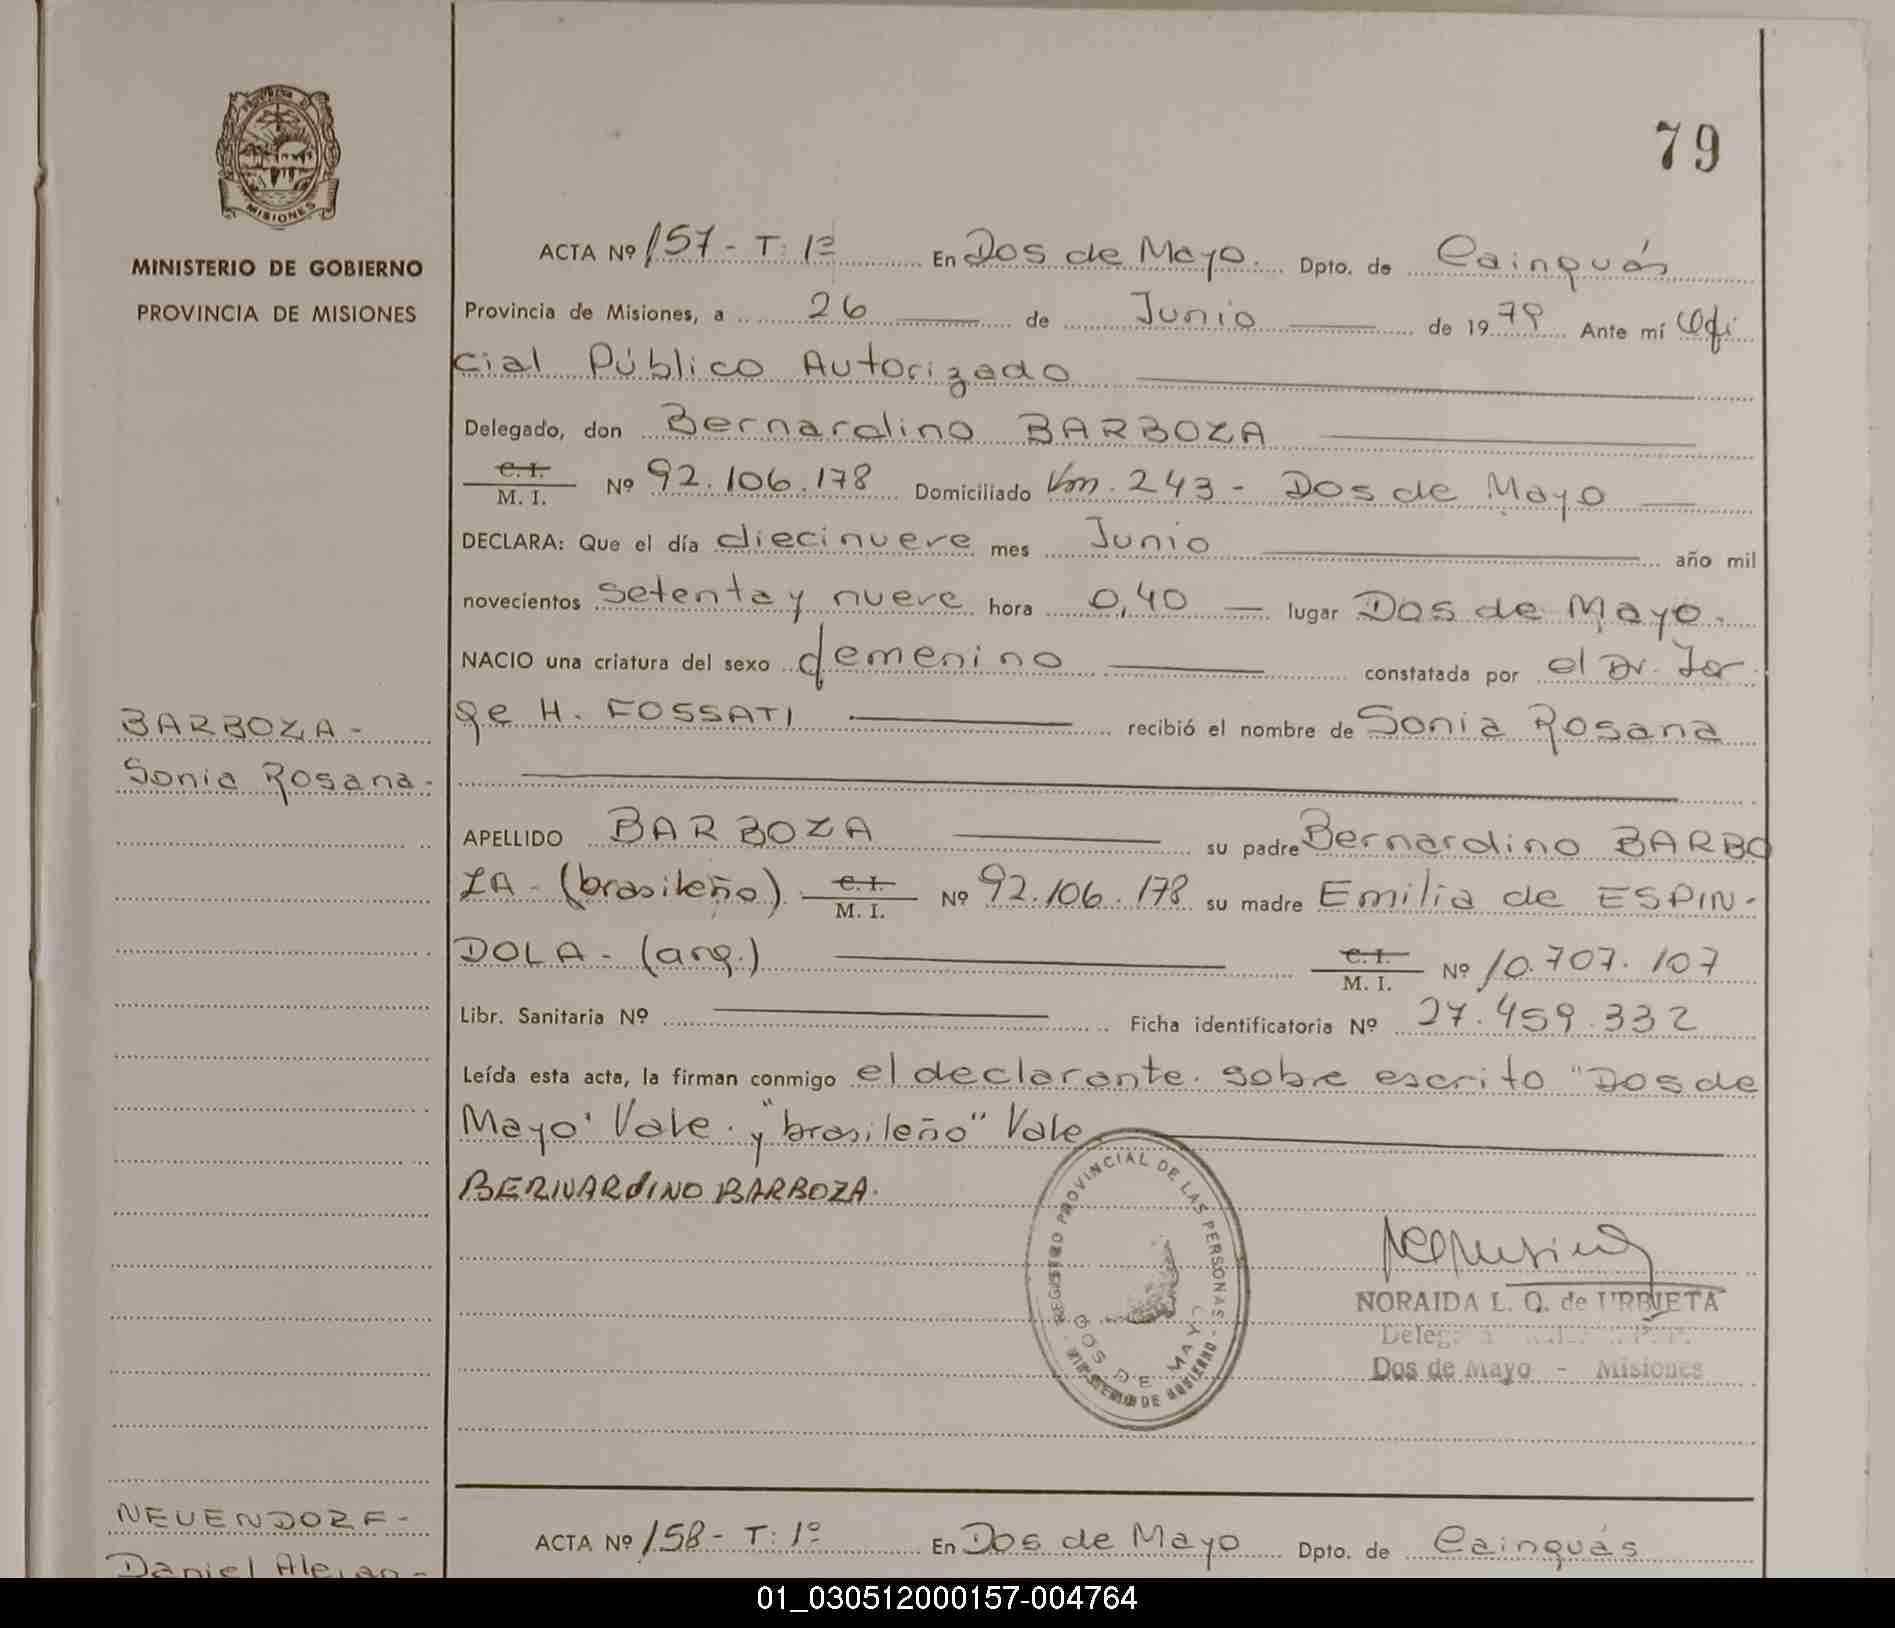 79
MINISTERIO DE GOBIERNO
PROVINCIA DE MISIONES
MISIONES
ACTA Nº 157 - T: 1º En Dos de Mayo. Dpto. de Cainguás
Provincia de Misiones, a 26 de Junio de 1979 Ante mí Ofi
cial Público Autorizado
Delegado, don Bernardino BARBOZA
C. I.
M. I. Nº 92.106.178 Domiciliado Km. 243 - Dos de Mayo
DECLARA: Que el día diecinueve mes Junio año mil
novecientos setenta y nueve hora 0,40 lugar Dos de Mayo.
NACIO una criatura del sexo femenino constatada por el Dr. Jor
ge H. FOSSATI recibió el nombre de Sonia Rosana
BARBOZA -
Sonia Rosana -
APELLIDO BARBOZA su padre Bernardino BARBO
ZA - (brasileño) C. I. M. I. Nº 92.106.178 su madre Emilia de ESPIN-
DOLA - (arg.) C. I. M. I. Nº 10.707.107
Libr. Sanitaria Nº Ficha identificatoria Nº 27.459.332
Leída esta acta, la firman conmigo el declarante. sobre escrito "Dos de
Mayo" Vale. y "brasileño" Vale
BERNARDINO BARBOZA.
REGISTRO PROVINCIAL DE LAS PERSONAS - MINISTERIO DE GOBIERNO
DOS DE MAYO
NORAIDA L. Q. de URBIETA
Dos de Mayo - Misiones
NEUENDORF -
Daniel Alejan-
ACTA Nº 158 - T: 1º En Dos de Mayo Dpto. de Cainguás
01_030512000157-004764